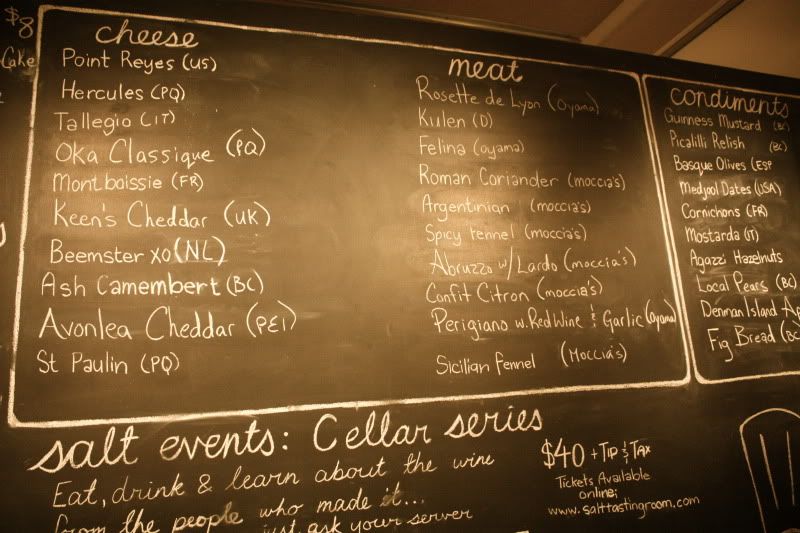 $8
Cake
cheese
Point Reyes (US)
Hercules (PQ)
Tallegio (IT)
Oka Classique (PQ)
Montboissie (FR)
Keen's Cheddar (UK)
Beemster XO (NL)
Ash Camembert (BC)
Avonlea Cheddar (PEI)
St Paulin (PQ)
meat
Rosette de Lyon (Oyama)
Kulen (D)
Felina (oyama)
Roman Coriander (moccia's)
Argentinian (moccia's)
Spicy fennel (moccia's)
Abruzzo w/ Lardo (moccia's)
Confit Citron (moccia's)
Perigiano w. Red Wine & Garlic (Oyama)
Sicilian Fennel (Moccia's)
condiments
Guinness Mustard (BC)
Picalilli Relish (BC)
Basque Olives (ESP
Medjool Dates (USA)
Cornichons (FR)
Mostarda (IT)
Agazzi Hazelnuts
Local Pears (BC)
Denman Island Ap
Fig Bread (BC
salt events: Cellar series
Eat, drink & learn about the wine
from the people who made it...
just ask your server
$40 + Tip & Tax
Tickets Available
online:
www.salttastingroom.com